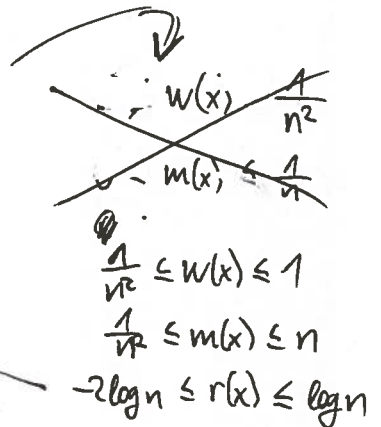 w(x) 1/n²
m(x) ≤ 1/n
1/n² ≤ w(x) ≤ 1
1/n² ≤ m(x) ≤ n
-2logn ≤ r(x) ≤ logn